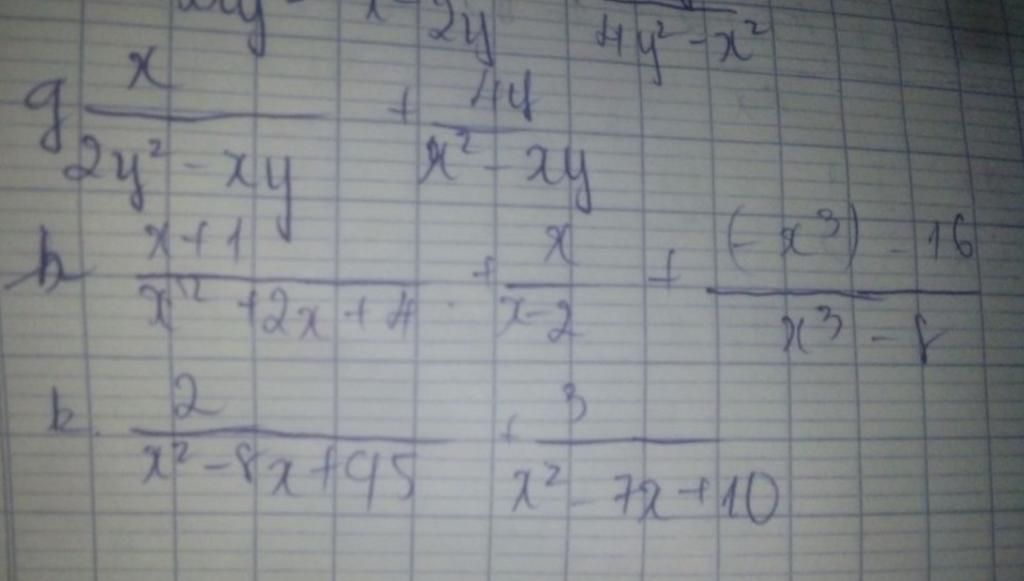 x 2y 4y² - x²
g x / 2y² - xy + 4y / x² - xy
h x + 1 / x² + 2x + 4 + x / x - 2 + (- x³) - 16 / x³ - 8
k. 2 / x² - 8x + 45 + 3 / x² - 7x + 10